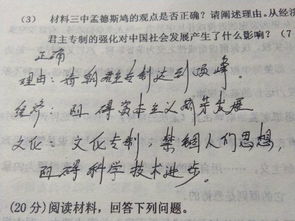 (3) 材料三中孟德斯鸠的观点是否正确？请阐述理由。从经济
君主专制的强化对中国社会发展产生了什么影响？(7
正确
理由：清朝君主专制达到顶峰。
经济：阻碍资本主义萌芽发展
文化：文化专制，禁锢人们思想，
阻碍科学技术进步。
(20分) 阅读材料，回答下列问题。